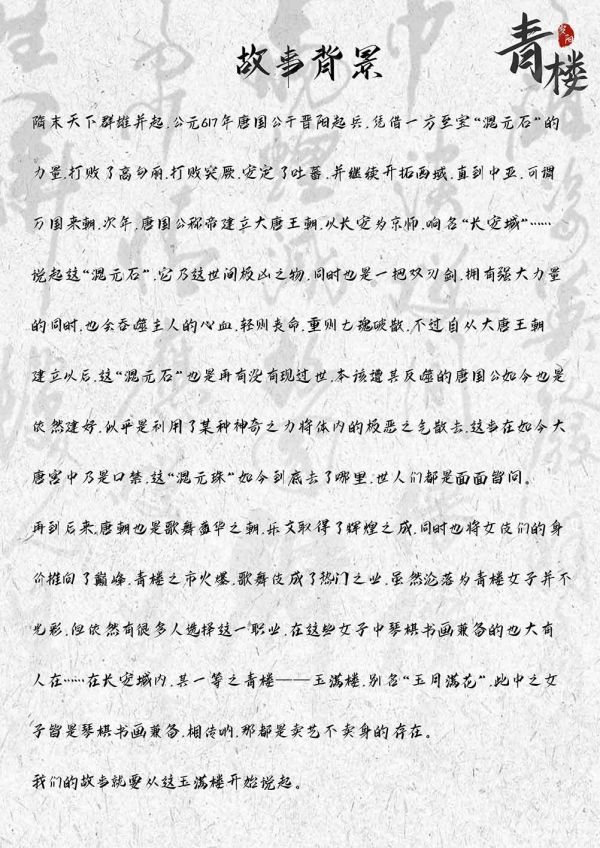 青楼
故事背景
隋末天下群雄并起，公元617年唐国公于晋阳起兵，凭借一方至宝“混元石”的
力量，打败了高句丽，打败突厥，安定了吐蕃，并继续开拓西域，直到中亚，可谓
万国来朝，次年，唐国公称帝建立大唐王朝，以长安为京师，响名“长安城”……
说起这“混元石”，它乃这世间极凶之物，同时也是一把双刃剑，拥有强大力量
的同时，也会吞噬主人的心血，轻则丧命，重则七魂破散，不过自从大唐王朝
建立以后，这“混元石”也是再有没有现过世，本该遭其反噬的唐国公如今也是
依然建好，似乎是利用了某种神奇之力将体内的极恶之气散去，这当在如今大
唐宫中乃是口禁，这“混元珠”如今到底去了哪里，世人们都是面面皆问。
再到后来，唐朝也是歌舞盛华之朝，乐文取得了辉煌之成，同时也将女伎们的身
价推向了巅峰，青楼之市火爆，歌舞伎成了热门之业，虽然沦落为青楼女子并不
光彩，但依然有很多人选择这一职业，在这些女子中琴棋书画兼备的也大有
人在……在长安城内，其一等之青楼——玉满楼，别名“玉月满花”，此中之女
子皆是琴棋书画兼备，相传呐，那都是卖艺不卖身的存在。
我们的故事就要从这玉满楼开始说起。